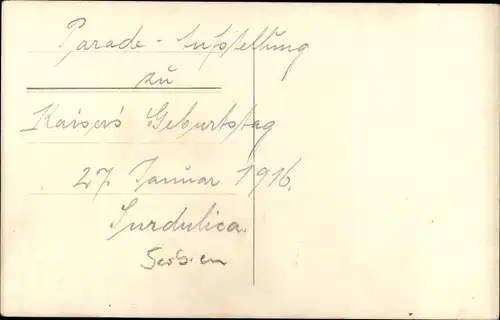 Parade-Aufstellung
zu
Kaisers Geburtstag
27 Januar 1916.
Surdulica.
Serbien